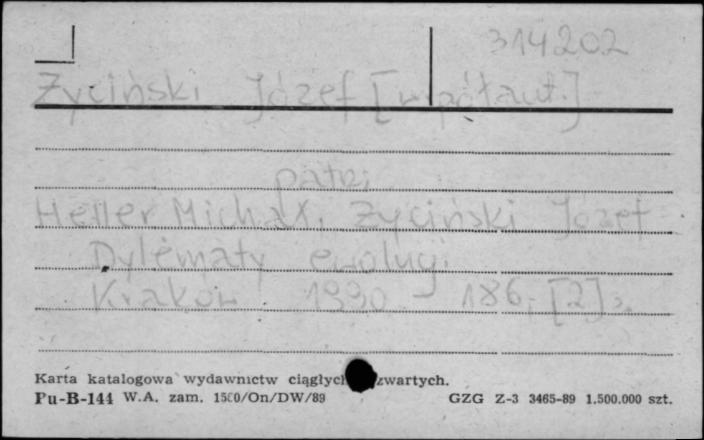 314202
Życiński Józef [współaut.]
patrz
Heller Michał, Życiński Józef
Dylematy ewolucji
Kraków 1990 - 186, [2] s.
Karta katalogowa wydawnictw ciągłych zwartych.
Pu-B-144 W.A. zam. 1500/On/DW/89 GZG Z-3 3465-89 1.500.000 szt.